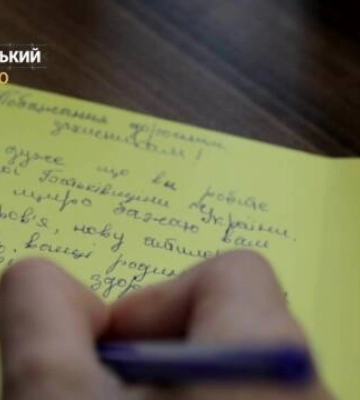 ький
О
Побажання дорогим
захисникам!
дуже що ви робите
Батьківщини України.
щиро бажаю вам
ров'я, нову
ваші родин
здор